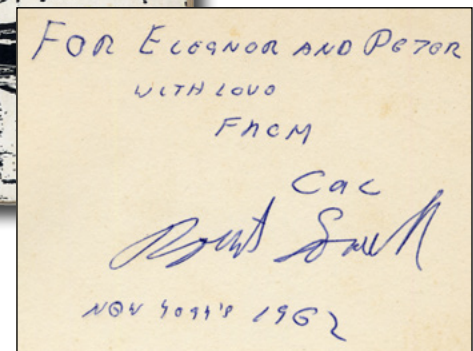 FOR ELEANOR AND PETER
WITH LOVE
FROM
CAL
Robert Lowell
NEW YEAR'S 1962